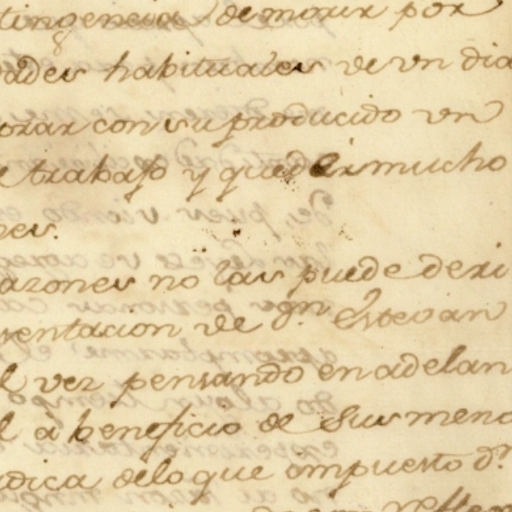 tingencia de morir por
dades habituales de un dia
orar con su producido un
e trabajo y quede mucho
nes.
azones no las puede deri
sentacion de dn. Estevan
l vez pensando en adelan
l à beneficio de Sus meno
udica delo que impuesto dn